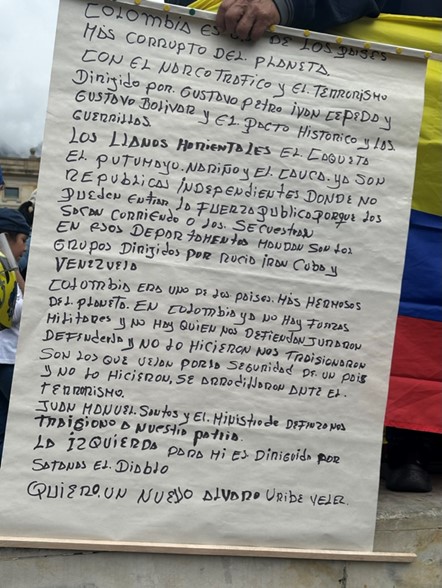 COLOMBIA ES UNO DE LOS PAISES
MAS CORRUPTO DEL PLANETA
CON EL NARCOTRAFICO Y EL TERRORISMO
Dirigido por. GUSTAVO PETRO IVAN CEPEDA Y
GUSTAVO BOLIVAR Y EL PACTO HISTORICO Y LOS
GUERRILLOS
LOS LLANOS HORIENTALES EL CAQUETA
EL PUTUMAYO. NARIÑO Y EL CAUCA. YA SON
REPUBLICAS INDEPENDIENTES DONDE NO
PUEDEN ENTRAR LA FUERZA PUBLICA PORQUE LOS
SACAN CORRIENDO O LOS SECUESTRAN
EN ESOS DEPARTAMENTOS MANDAN SON LOS
GRUPOS DIRIGIDOS POR RUCIA IRAN CUBA Y
VENEZUELA
COLOMBIA ERA UNO DE LOS PAISES. MAS HERMOSOS
DEL PLANETA. EN COLOMBIA YA NO HAY FUERZAS
MILITARES Y NO HAY QUIEN NOS DEFIENDAN JURARON
DEFENDERLA Y NO LO HICIERON NOS TRAISIONARON
SON LOS QUE VELAN POR LA SEGURIDAD DE UN PAIS
Y NO LO HICIERON, SE ARRODILLARON ANTE EL
TERRORISMO.
JUAN MANUEL SANTOS Y EL MINISTRO DE DEFENZA NOS
TRAIGIONO A NUESTRA PATRIA.
LA IZQUIERDA PARA MI ES DIRIGUIDA POR
SATANAS EL DIABLO
QUIERO. UN NUEVO ALVARO URIBE VELEZ.